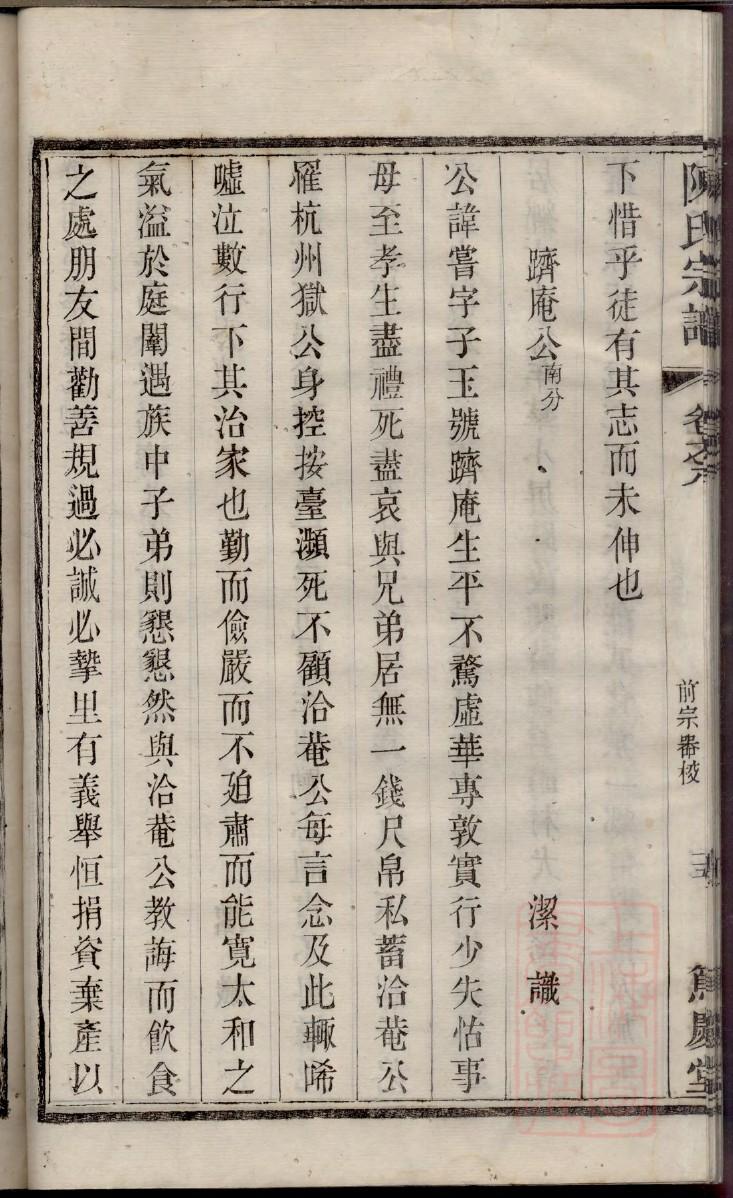 陳氏宗譜
卷之六
前宗器梭
五
篤慶堂
下惜乎徒有其志而未伸也
躋庵公南分
潔識
公諱嘗字子玉號躋庵生平不騖虛華專敦實行少失怙事
母至孝生盡禮死盡哀與兄弟居無一錢尺帛私蓄洽菴公
罹杭州獄公身控按臺瀕死不顧洽菴公每言念及此輙唏
噓泣數行下其治家也勤而儉嚴而不廹肅而能寬太和之
氣溢於庭闈遇族中子弟則懇懇然與洽菴公教誨而飲食
之處朋友間勸善規過必誠必摯里有義舉恒捐資棄產以